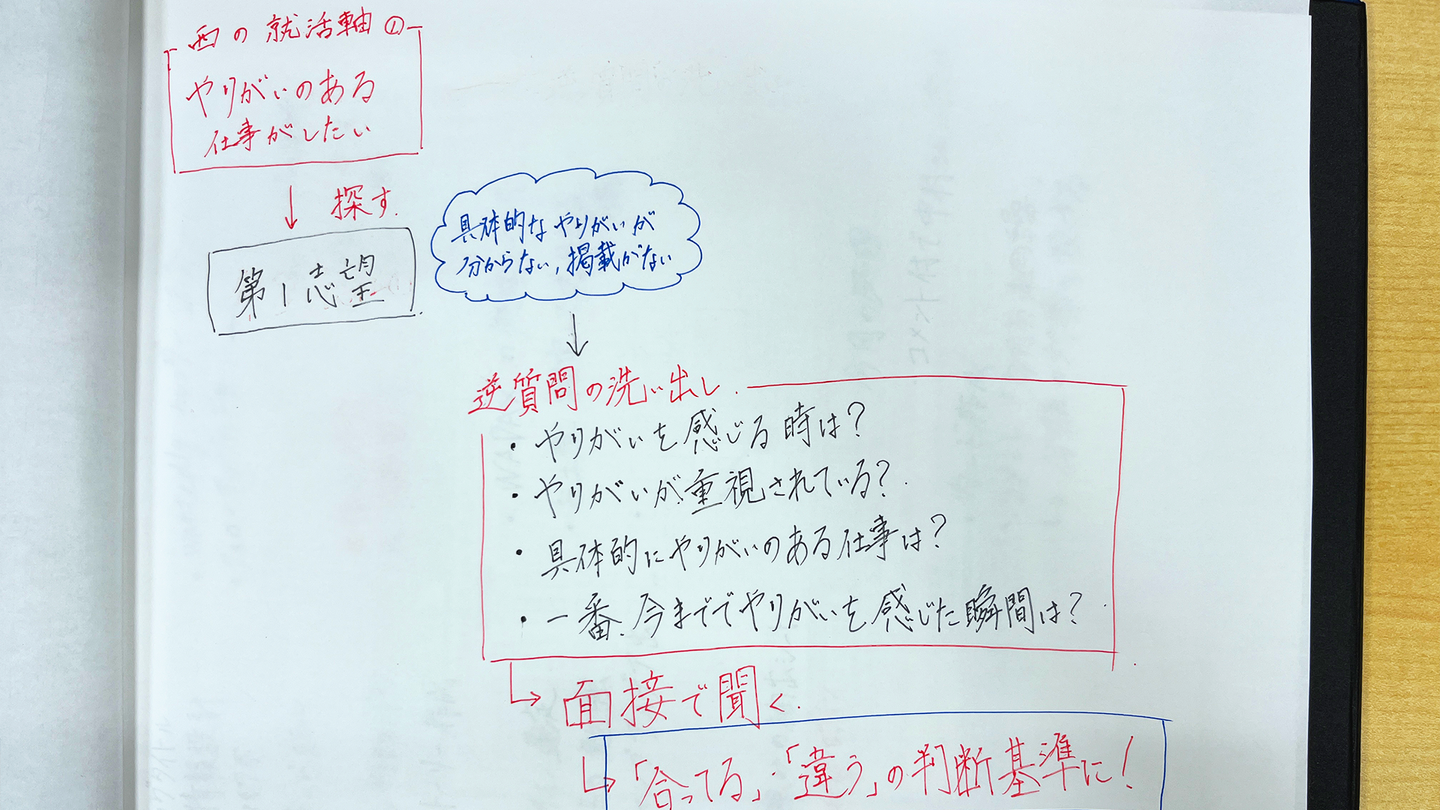 西の就活軸①
やりがいのある
仕事がしたい
探す.
第1志望
具体的なやりがいが
分からない,掲載がない
逆質問の洗い出し.
・やりがいを感じる時は?
・やりがいが重視されている?
・具体的にやりがいのある仕事は?
・一番.今まででやりがいを感じた瞬間は?
面接で聞く.
「合ってる」・「違う」の判断基準に!